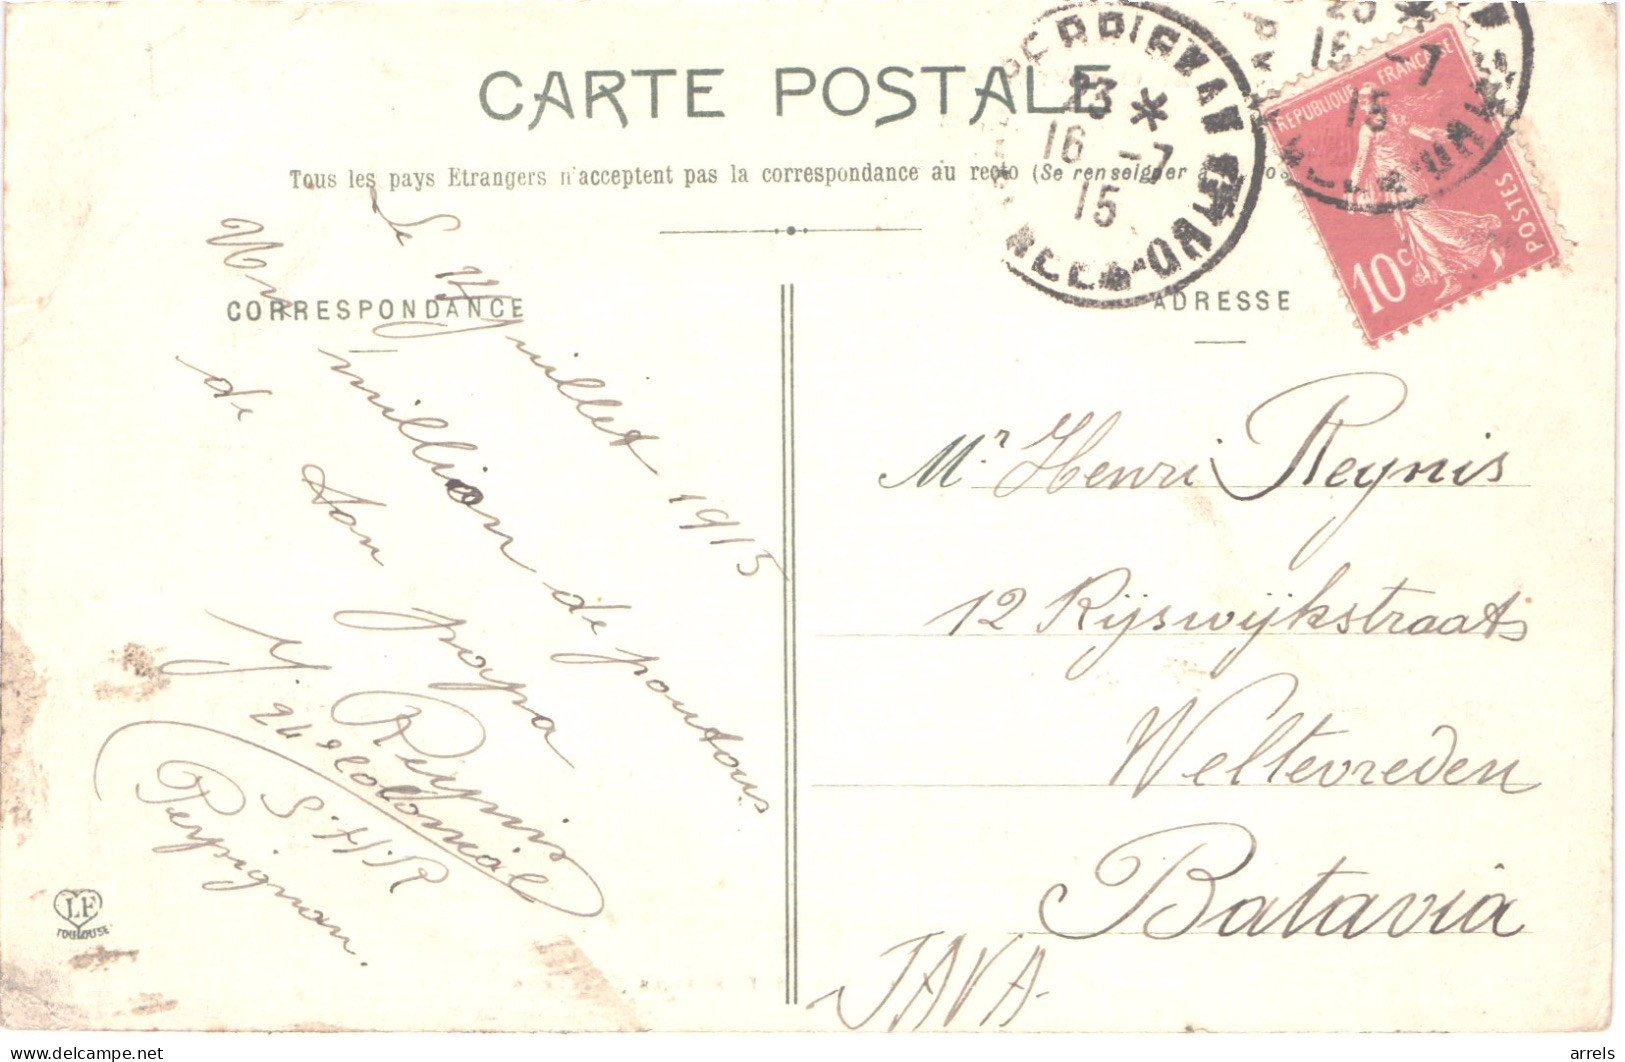 CARTE POSTALE
Tous les pays Etrangers n'acceptent pas la correspondance au recto (Se renseigner à
CORRESPONDANCE
ADRESSE
PERPIGNAN
23 *
16 -7
15
23 *
16 -7
15
REPUBLIQUE FRANÇAISE
POSTES
10c
Le 14 Juillet 1915
Un million de poutous
de ton papa
Reynis
24e Colonial
S.H.R
Perpignan.
Mr. Henri Reynis
12 Rijswijkstraat
Weltevreden
Batavia
JAVA-
LF
TOULOUSE
arrels